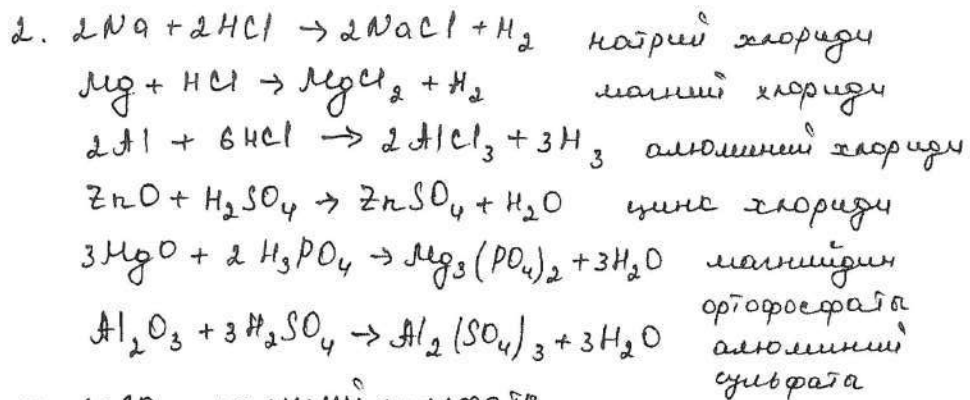 2. 2Na + 2HCl → 2NaCl + H₂ натрий хлориди
Mg + HCl → MgCl₂ + H₂ магний хлориди
2Al + 6HCl → 2AlCl₃ + 3H₃ алюминий хлориди
ZnO + H₂SO₄ → ZnSO₄ + H₂O цинк хлориди
3MgO + 2H₃PO₄ → Mg₃(PO₄)₂ + 3H₂O магнийдин
ортофосфаты
Al₂O₃ + 3H₂SO₄ → Al₂(SO₄)₃ + 3H₂O алюминий
сульфата